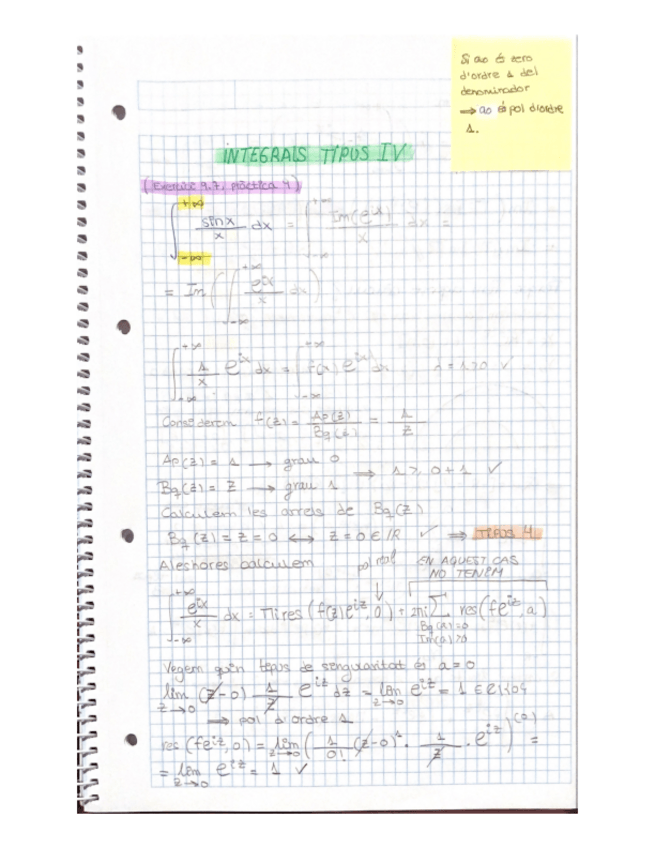 Si ao és zero
d'ordre 1 del
denominador
⟹ ao és pol d'ordre
1.
INTEGRALS TIPUS IV
(Exercici 9.7, pràctica 4)
∫_{-∞}^{+∞} sinx/x dx = ∫_{-∞}^{+∞} Im(e^{ix})/x dx =
= Im(∫_{-∞}^{+∞} e^{ix}/x dx)
∫_{-∞}^{+∞} 1/x e^{ix} dx = ∫_{-∞}^{+∞} f(x) e^{ix} dx = 1>0 ✓
Considerem f(z) = Ap(z)/Bq(z) = 1/z
Ap(z) = 1 → grau 0
⟹ 1 ≥ 0+1 ✓
Bq(z) = z → grau 1
Calculem les arrels de Bq(z)
Bq(z) = z = 0 ⟷ z = 0 ∈ ℝ ✓ ⟹ TIPUS 4
Aleshores calculem pol real EN AQUEST CAS
NO TENIM
∫_{-∞}^{+∞} e^{ix}/x dx = πi res(f(z)e^{iz}, 0) + 2πi ∑ res(fe^{iz}, a)
Bq(a)=0
Im(a)>0
Vegem quin tipus de singularitat és a = 0
lim_{z→0} (z-0) 1/z e^{iz} dz = lim_{z→0} e^{iz} = 1 ∈ ℂ\{0}
⟹ pol d'ordre 1
res(fe^{iz}, 0) = lim_{z→0} (1/0! (z-0)^1 · 1/z · e^{iz})^{(0)} =
= lim_{z→0} e^{iz} = 1 ✓